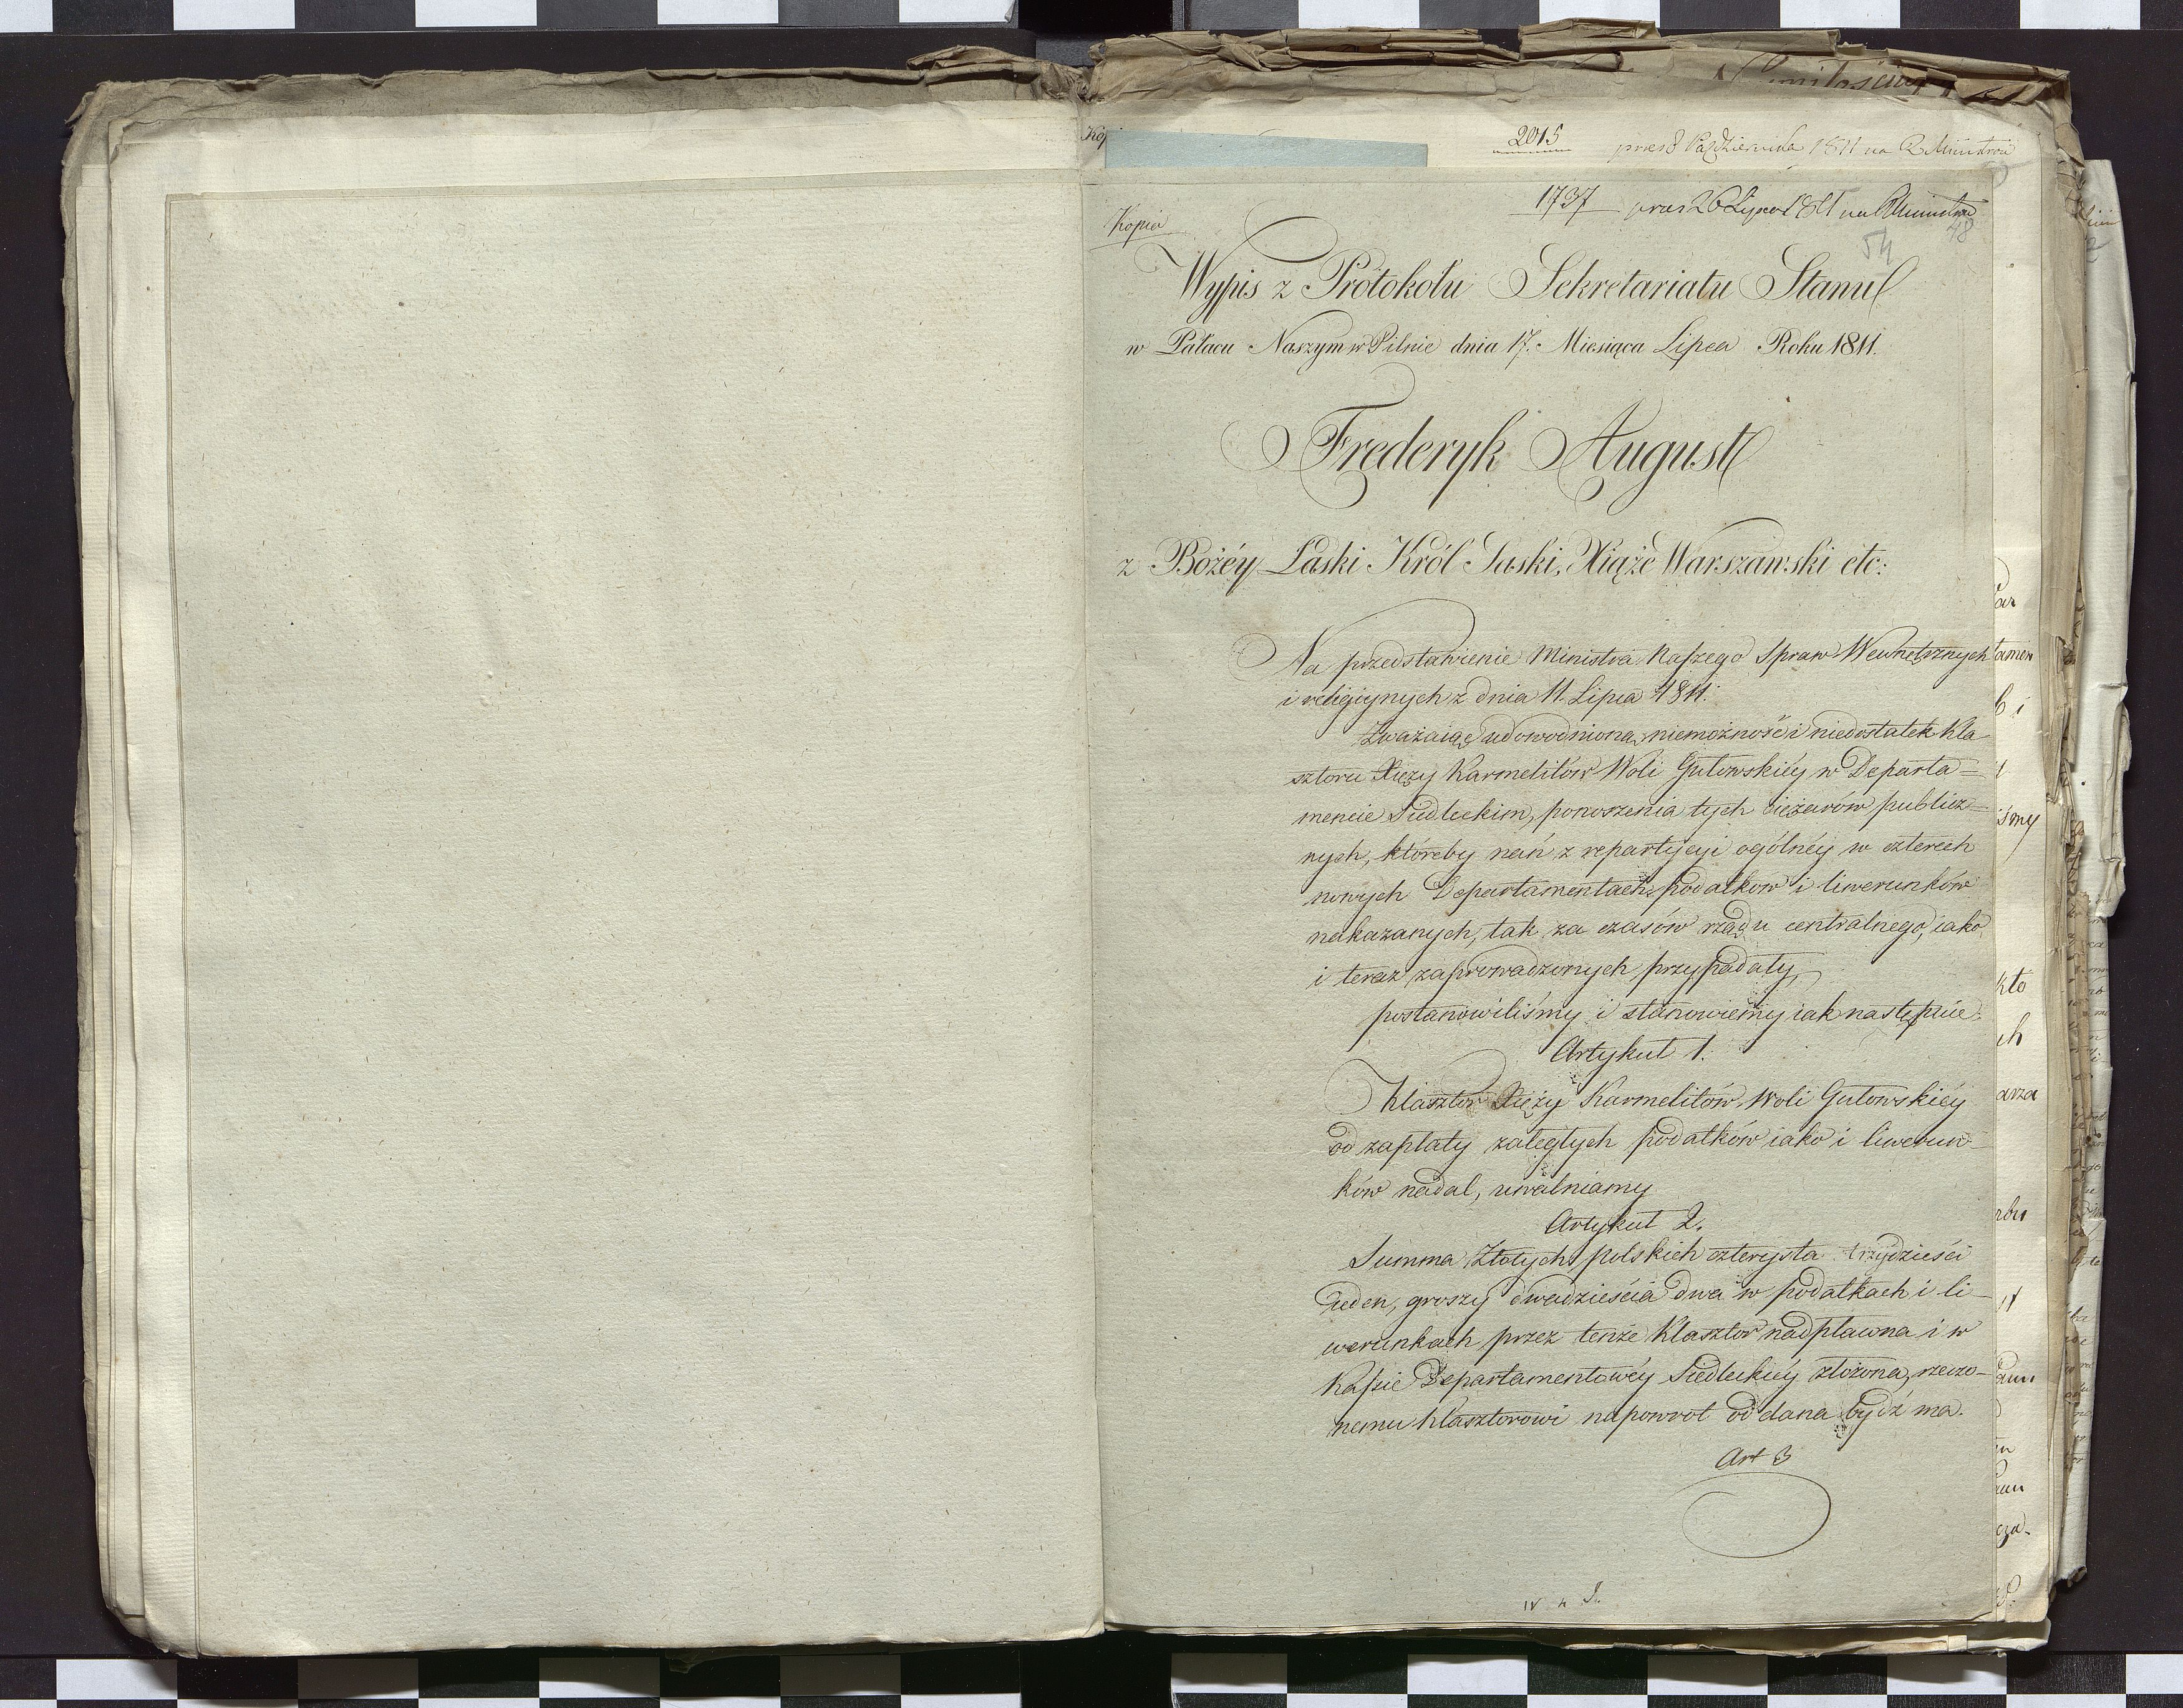 2015 pres 8 Października 1811 na R Ministrów
1737 pres 26 Lipca 1811 na R Ministrów
Kopia
48
54
Wypis z Prótokołu Sekretariatu Stanu
w Pałacu Naszym w Pilnic dnia 17. Miesiąca Lipca Roku 1811.
Frederyk August
z Bożéy Łaski Król Saski, Xiąże Warszawski etc:
Na przedstawienie Ministra Naszego Spraw Wewnętrznych
i religiynych z dnia 11. Lipca 1811.
Zważaiąc udowodnioną niemożność i niedostatek Kla
sztoru Xięży Karmelitów Woli Gutowskiéy w Departa=
mencie Siedleckim, ponoszenia tych ciężarów publicz=
nych, któreby nań z repartycyi ogólnéy w czterech
nowych Departamentach podatkow i liwerunków
nakazanych, tak za czasów rządu centralnego, iako
i teraz zaprowadzonych przypadały,
postanowiliśmy i stanowiemy iak następuie:
Artykuł 1.
Klasztor Xięży Karmelitów Woli Gutowskiéy
od zapłaty zaległych podatków iako i liwerun-
ków nadal, uwalniamy
Artykuł 2.
Summa Złotych polskich czterysta trzydzieści
ieden, groszy dwadzieścia dwa w podatkach i li-
werunkach przez tenże Klasztor nadpłacona i w
Kassie Departamentowéy Siedleckiéy złożona, rzeczo-
nemu Klasztorowi napowrot oddana bydź ma.
Art 3